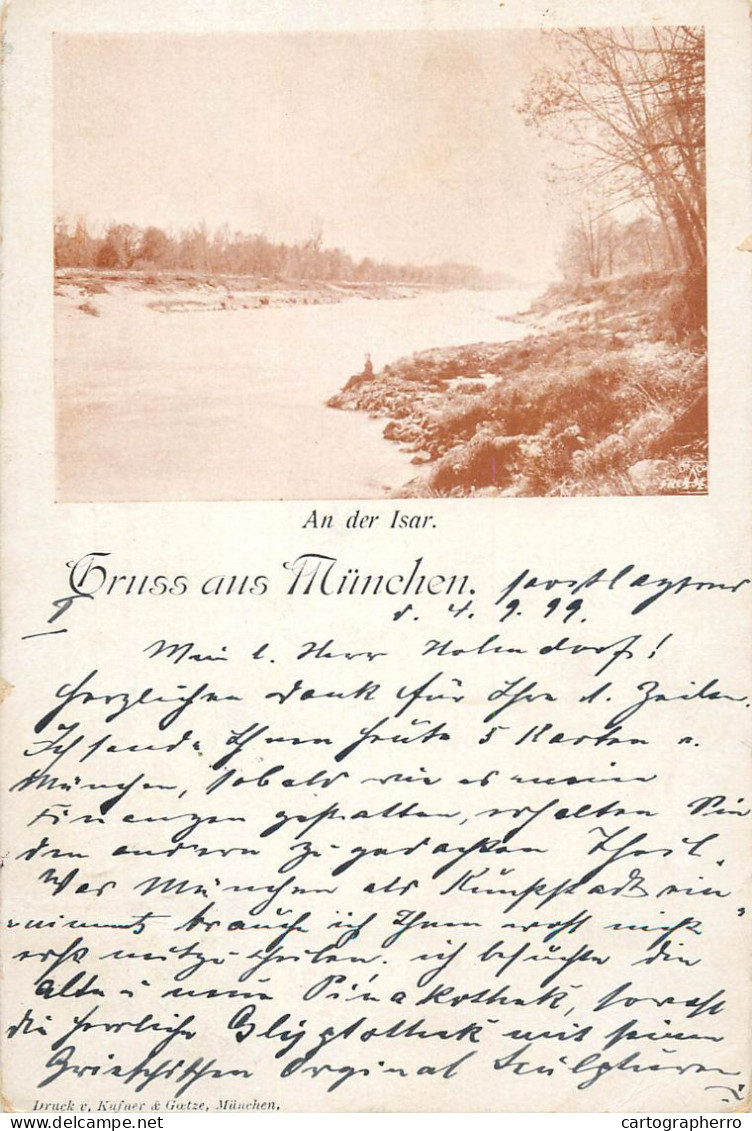 An der Isar.
Gruss aus München.
d. 4. 9. 99.
Mein l. Herr
Herzlichen Dank für Ihre l. Zeilen.
Ich sende Ihnen heute 5 Karten a.
München, sobald wie es meine
Finanzen gestatten, erhalten Sie
den andern zu gedachten Theil.
Was München als Kunststadt ein
nimmt, brauch ich Ihnen wohl nicht
erst mitzutheilen. ich besuchte die
alte u neue Pinakothek, sowohl
die herrliche Glyptothek mit seinen
Griechischen Orginal Sculpturen
Druck v. Kufner & Goetze, München.
cartographerro